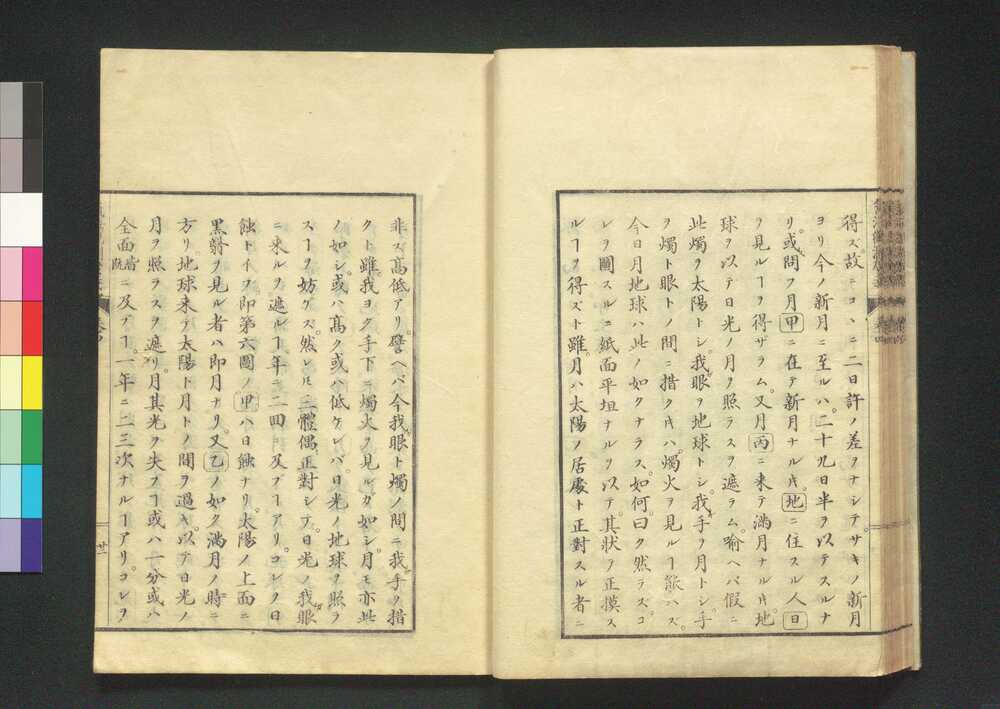 得ズ。故ニコヽニ二日許ノ差ヲナシテ。サキノ新月
ヨリ今ノ新月ニ至ルハ。二十九日半ヲ以テスルナ
リ。或問フ月甲ニ在テ新月ナルトキ。地ニ住スル人日
ヲ見ルヿヲ得ザラム。又月丙ニ来テ満月ナルトキ。地
球ヲ以テ日光ノ月ヲ照ラスヲ遮ラム。喩ヘバ假ニ
此燭ヲ太陽トシ。我眼ヲ地球トシ。我手ヲ月トシ。手
ヲ燭ト眼トノ間ニ措クトキハ。燭火ヲ見ルヿ能ハズ。
今日月地球ハ此ノ如クナラズ。如何。曰ク然ラズ。コ
レヲ圖スルニ紙面平坦ナルヲ以テ。其状ヲ正摸ス
ルヿヲ得ズト雖。月ハ太陽ノ居處ト正對スル者ニ
非ズ。高低アリ。譬ヘバ今我眼ト燭ノ間ニ我手ヲ措
クト雖。我ヨク手下ニ燭火ヲ見ルガ如シ。月モ亦此
ノ如シ。或ハ高ク或ハ低ケレバ。日光ノ地球ヲ照ラ
スヿヲ妨ゲズ。然レドモ二體偶正對シテ。日光ノ我眼
ニ来ルヲ遮ルヿ年ニ二四及ブヿアリ。コレヲ日
蝕トイフ。即第六圖ノ甲ハ日蝕ナリ。太陽ノ上面ニ
黒翳ヲ見ル者ハ即月ナリ。又乙ノ如ク満月ノ時ニ
方リ。地球来テ太陽ト月トノ間ヲ過ギ。以テ日光ノ
月ヲ照ラスヲ遮リ。月其光ヲ失フヿ或ハ一分或ハ
全面皆既ニ及ブヿ。一年ニ二三次ナルヿアリ。コレヲ
廿一